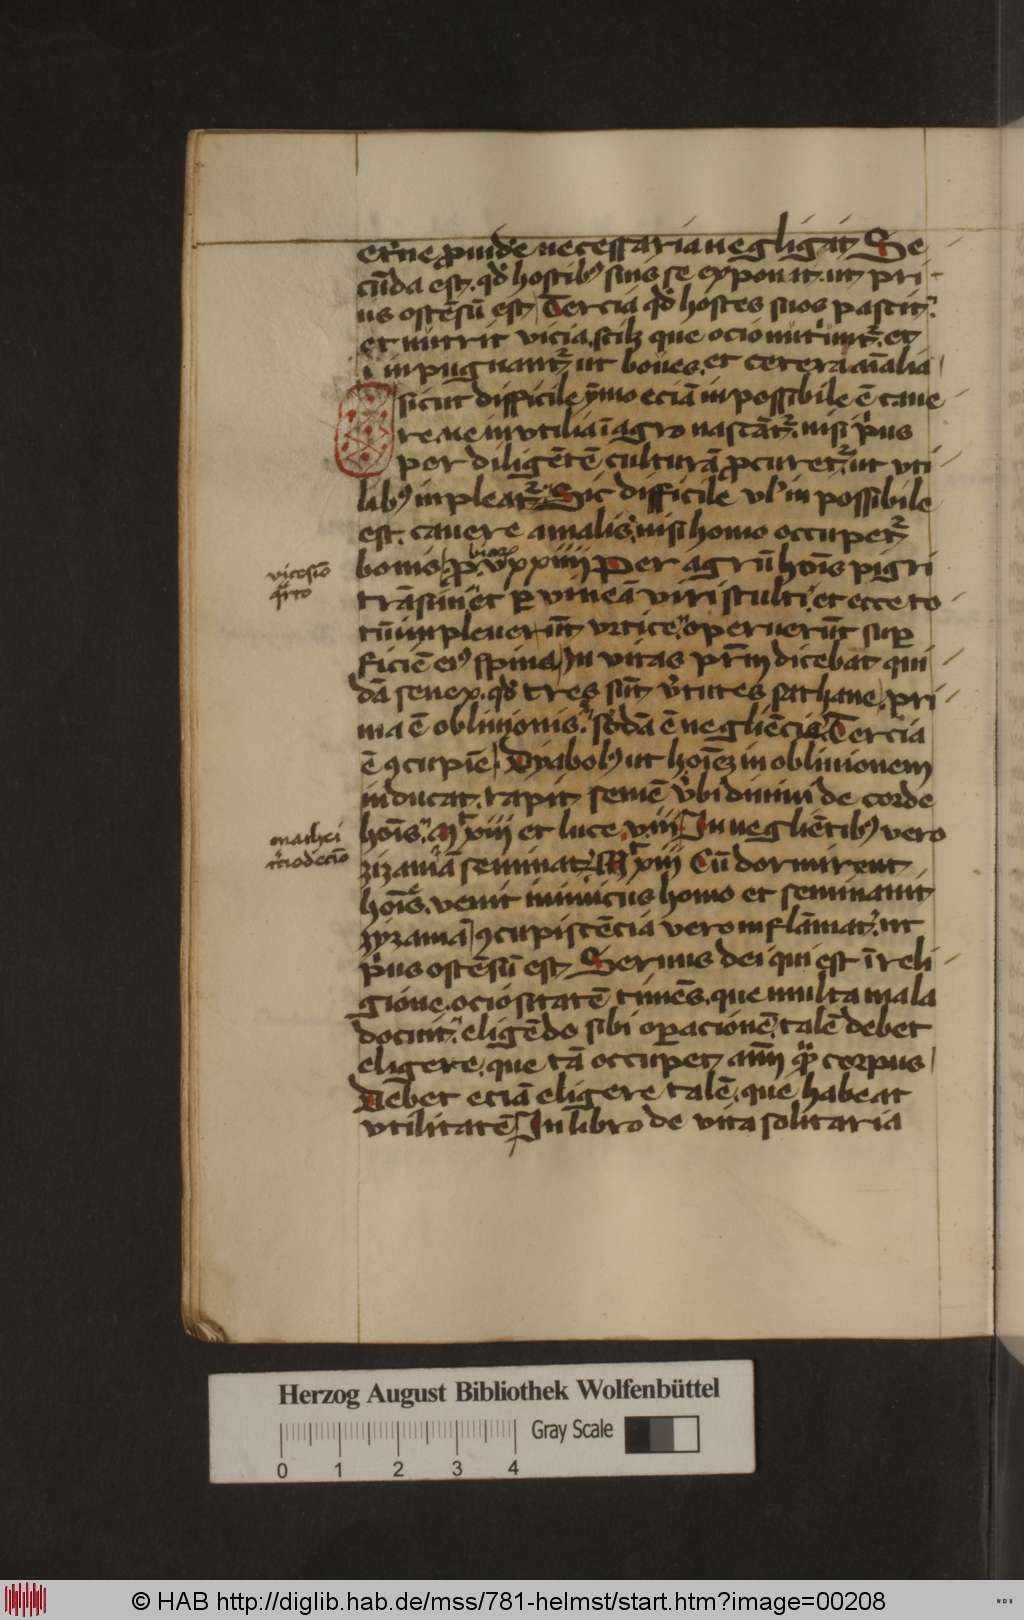 etͥne ꝓuidͤe necessaria negligit Se
cūda est. qđ hostibꝰ suis se exponit. ut pri
us ostēsū est Tercia qđ hostes suos pascit.
et nutrit vicia. scilꝫ que ocio nutͥūtᷣ. et
inpugnantᷣ ut boues. et cetera aīalia
sicut difficile ẏmo eciā inpossibile ē caue
re. ne invtilia ī agro nascātᷣ. nisi pͥus
per diligētē culturā ꝓcuretᷣ. ut vti
libꝰ inpleatᷣ Sic difficile vlˀ inpossibile
est. cauere a malis. nisi homo occupetᷣ
bonis. ꝓubioꝝ xxiiii Per agrū hoīs pigri
trāsiui et ꝑ vineā viri stulti. et ecce to
tū inpleuerūt vrtice. operuerūt suꝑ
ficiē eiꝰ spine In vitas pr̄m dicebat qui
dā senex. qđ tres sūt vͥtutes sathane. pri
ma ē obliuionis. scđa ē negliēcie. Tercia
ē ꝯcupiē. Dyabolꝰ ut hoīeꝫ in obliuionem
inducat. rapit semē vͥbi diuini de corde
hoīs. Mͬ xiii et luce. viii In negliētibꝰ vero
zizaniā seminat. Mͬ xiii Cū dormirent
hoīes. venit inimicus homo et seminauit
zyzaniā ꝯcupiscēcia vero inflāmat. ut
pͥus ostēsū est Seruus dei qui est ī reli
gione. ociositatē timēs. que multa mala
docuit. eligēdo sibi oꝑacionē. talē debet
eligere. que tā occupet aīm qͣꝫ corpus
Debet eciā eligere talē. que habeat
vtilitatē In libro de vita solitaria
vicesīo
qͣrto
mathei
tͥciodecīo
Herzog August Bibliothek Wolfenbüttel
Gray Scale
0 1 2 3 4
© HAB http://diglib.hab.de/mss/781-helmst/start.htm?image=00208